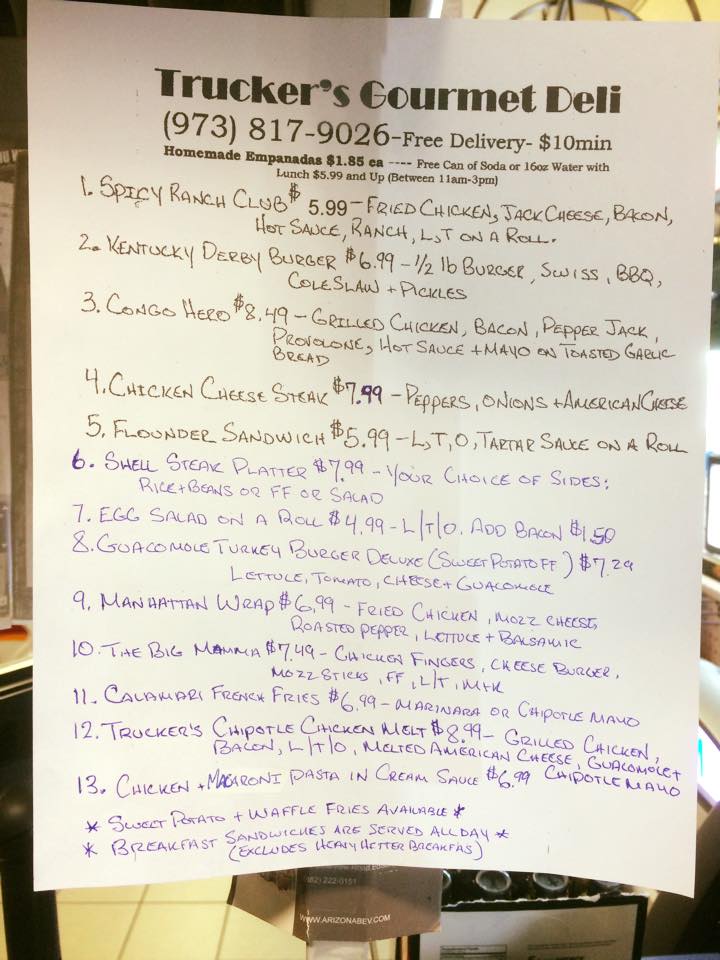 Trucker's Gourmet Deli
(973) 817-9026-Free Delivery- $10min
Homemade Empanadas $1.85 ea ---- Free Can of Soda or 16oz Water with
Lunch $5.99 and Up (Between 11am-3pm)
1. SPICY RANCH CLUB $5.99 - FRIED CHICKEN, JACK CHEESE, BACON,
HOT SAUCE, RANCH, L,T ON A ROLL.
2. KENTUCKY DERBY BURGER $6.99 - 1/2 lb BURGER, SWISS, BBQ,
COLESLAW + PICKLES
3. CONGO HERO $8.49 - GRILLED CHICKEN, BACON, PEPPER JACK,
PROVOLONE, HOT SAUCE + MAYO ON TOASTED GARLIC
BREAD
4. CHICKEN CHEESE STEAK $7.99 - PEPPERS, ONIONS + AMERICAN CHEESE
5. FLOUNDER SANDWICH $5.99 - L,T,O, TARTAR SAUCE ON A ROLL
6. SHELL STEAK PLATTER $7.99 - YOUR CHOICE OF SIDES:
RICE + BEANS OR FF OR SALAD
7. EGG SALAD ON A ROLL $4.99 - L/T/O. ADD BACON $1.50
8. GUACOMOLE TURKEY BURGER DELUXE (SWEET POTATO FF) $7.29
LETTUCE, TOMATO, CHEESE + GUACOMOLE
9. MANHATTAN WRAP $6.99 - FRIED CHICKEN, MOZZ CHEESE,
ROASTED PEPPER, LETTUCE + BALSAMIC
10. THE BIG MAMMA $7.49 - CHICKEN FINGERS, CHEESE BURGER,
MOZZ STICKS, FF, L/T, M+K
11. CALAMARI FRENCH FRIES $6.99 - MARINARA OR CHIPOTLE MAYO
12. TRUCKER'S CHIPOTLE CHICKEN MELT $8.99 - GRILLED CHICKEN,
BACON, L/T/O, MELTED AMERICAN CHEESE, GUACOMOLE +
CHIPOTLE MAYO
13. CHICKEN + MACARONI PASTA IN CREAM SAUCE $6.99
* SWEET POTATO + WAFFLE FRIES AVAILABLE *
* BREAKFAST SANDWICHES ARE SERVED ALL DAY *
(EXCLUDES HEAVY HITTER BREAKFAS)
222-0151
WWW.ARIZONABEV.COM